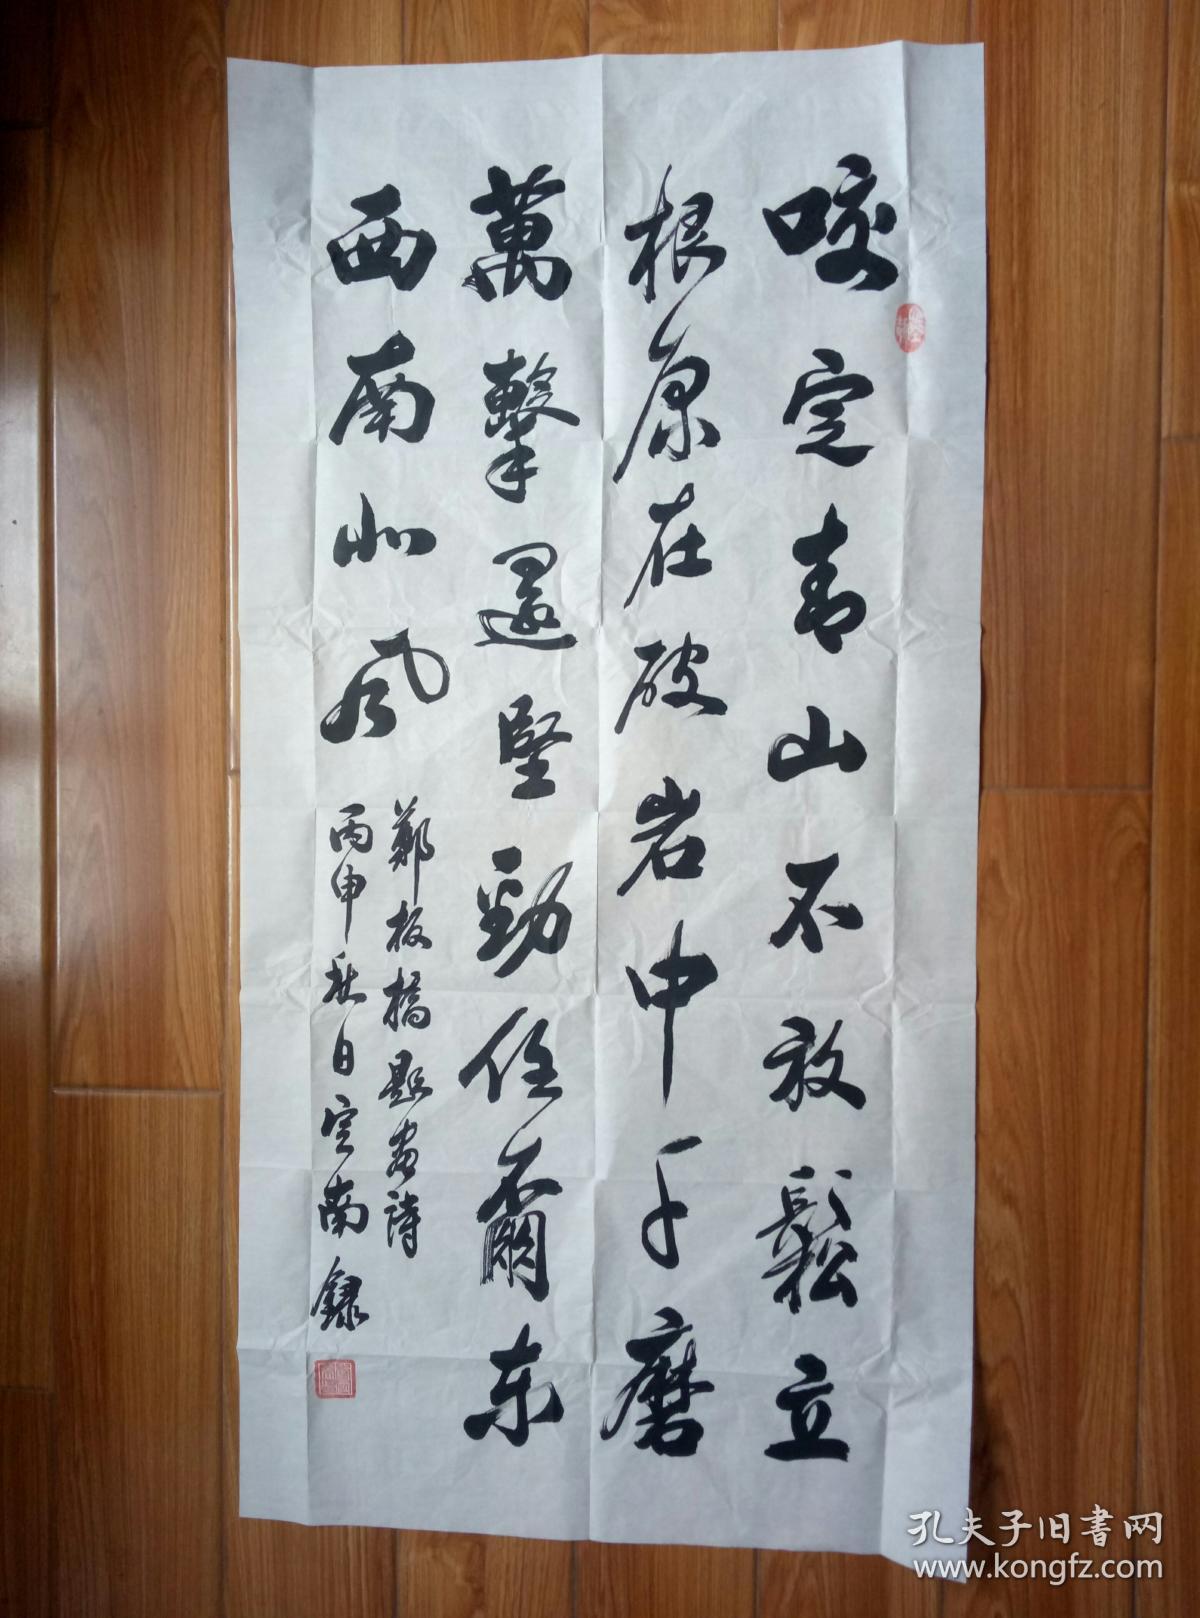 咬定青山不放鬆立
根原在破岩中千磨
萬擊還堅勁任爾东
西南北风
鄭板橋題畫詩
丙申秋日定南録
孔夫子旧書网
www.kongfz.com